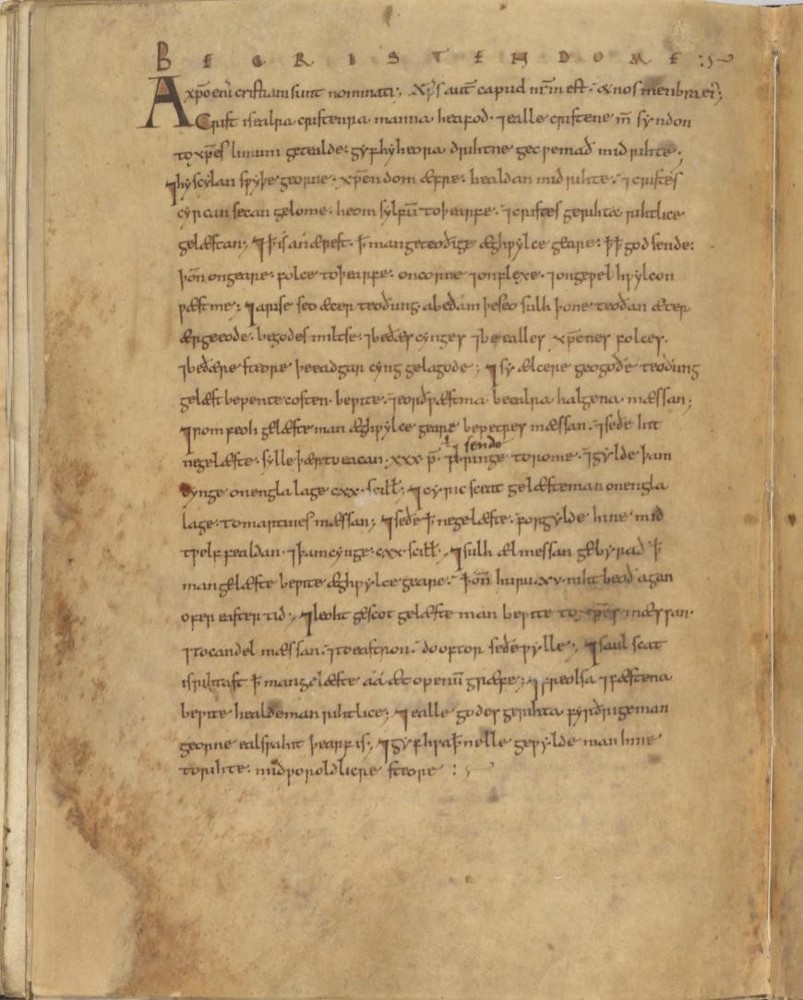 BE CRISTENDOME :~
A xp̄o enī cristiani sunt nominati. Xp̄s aut̄ capud nr̄m est. & nos menbra ei᷒;
Crist is ealra cristenra manna heafod. ⁊ ealle cristene m̄ syndon
to xp̄es limum getealde. gyf hy heora drihtne gecwemað mid rihte.
⁊ hy sculan swyþe georne. xp̄endom æfre. healdan mid rihte. ⁊ cristes
cyrican secan gelome. heom sylfū to þearfe. ⁊ cristes gerihta rihtlice
gelæstan; ⁊ ꝥ is an ærest. ꝥ man geteoðige æghwylce geare. ꝥꝥ god sende.
þōn on geare. folce to þearfe. on corne ⁊ on flexe. ⁊ on gehwylcon
wæstme; ⁊ arise seo æcer teoðung. a be ðam þe seo sulh þone teoðan æcer
ær geeode. be godes miltse. ⁊ be ðæs cynges ⁊ be ealles xp̄enes folces.
⁊ be ðære steore þe eadgar cyng gelagode; ⁊ sy ælcere geogoðe teoðung
gelæst be pentecosten. be wite. ⁊ eorðwæstma be ealra halgena mæssan;
⁊ rom feoh gelæste man æghwylce geare be petres mæssan. ⁊ se ðe hit
ne gelæste. sylle þærto eacan .xxx. p̄. ⁊ bringe ł sende to rome. ⁊ gylde þam
cynge on engla lage cxx. scill̄. ⁊ cyric sceat gelæste man on engla
lage. to martines mæssan; ⁊ se ðe ꝥ ne gelæste. forgylde hine mid
twelf fealdan. ⁊ þam cynge. cxx. scill̄. ⁊ sulh ælmessan gebyrað ꝥ
man gelæste be wite. æghwylce geare. þōn huru. xv. niht beoð agan
ofer easter tid. ⁊ leoht gescot gelæste man be wite to xp̄es mæssan.
⁊ to candel mæssan. ⁊ to eastron. do oftor se ðe wylle; ⁊ saul scat
is rihtast ꝥ man gelæste aa æt openū græfe; ⁊ freolsa ⁊ fæstena
be wite healde man rihtlice; ⁊ ealle godes gerihta fyrðrige man
georne ealswa hit þearf is; ⁊ gyf hwa ꝥ nelle gewylde man hine
to rihte. mid woroldlicre steore :~